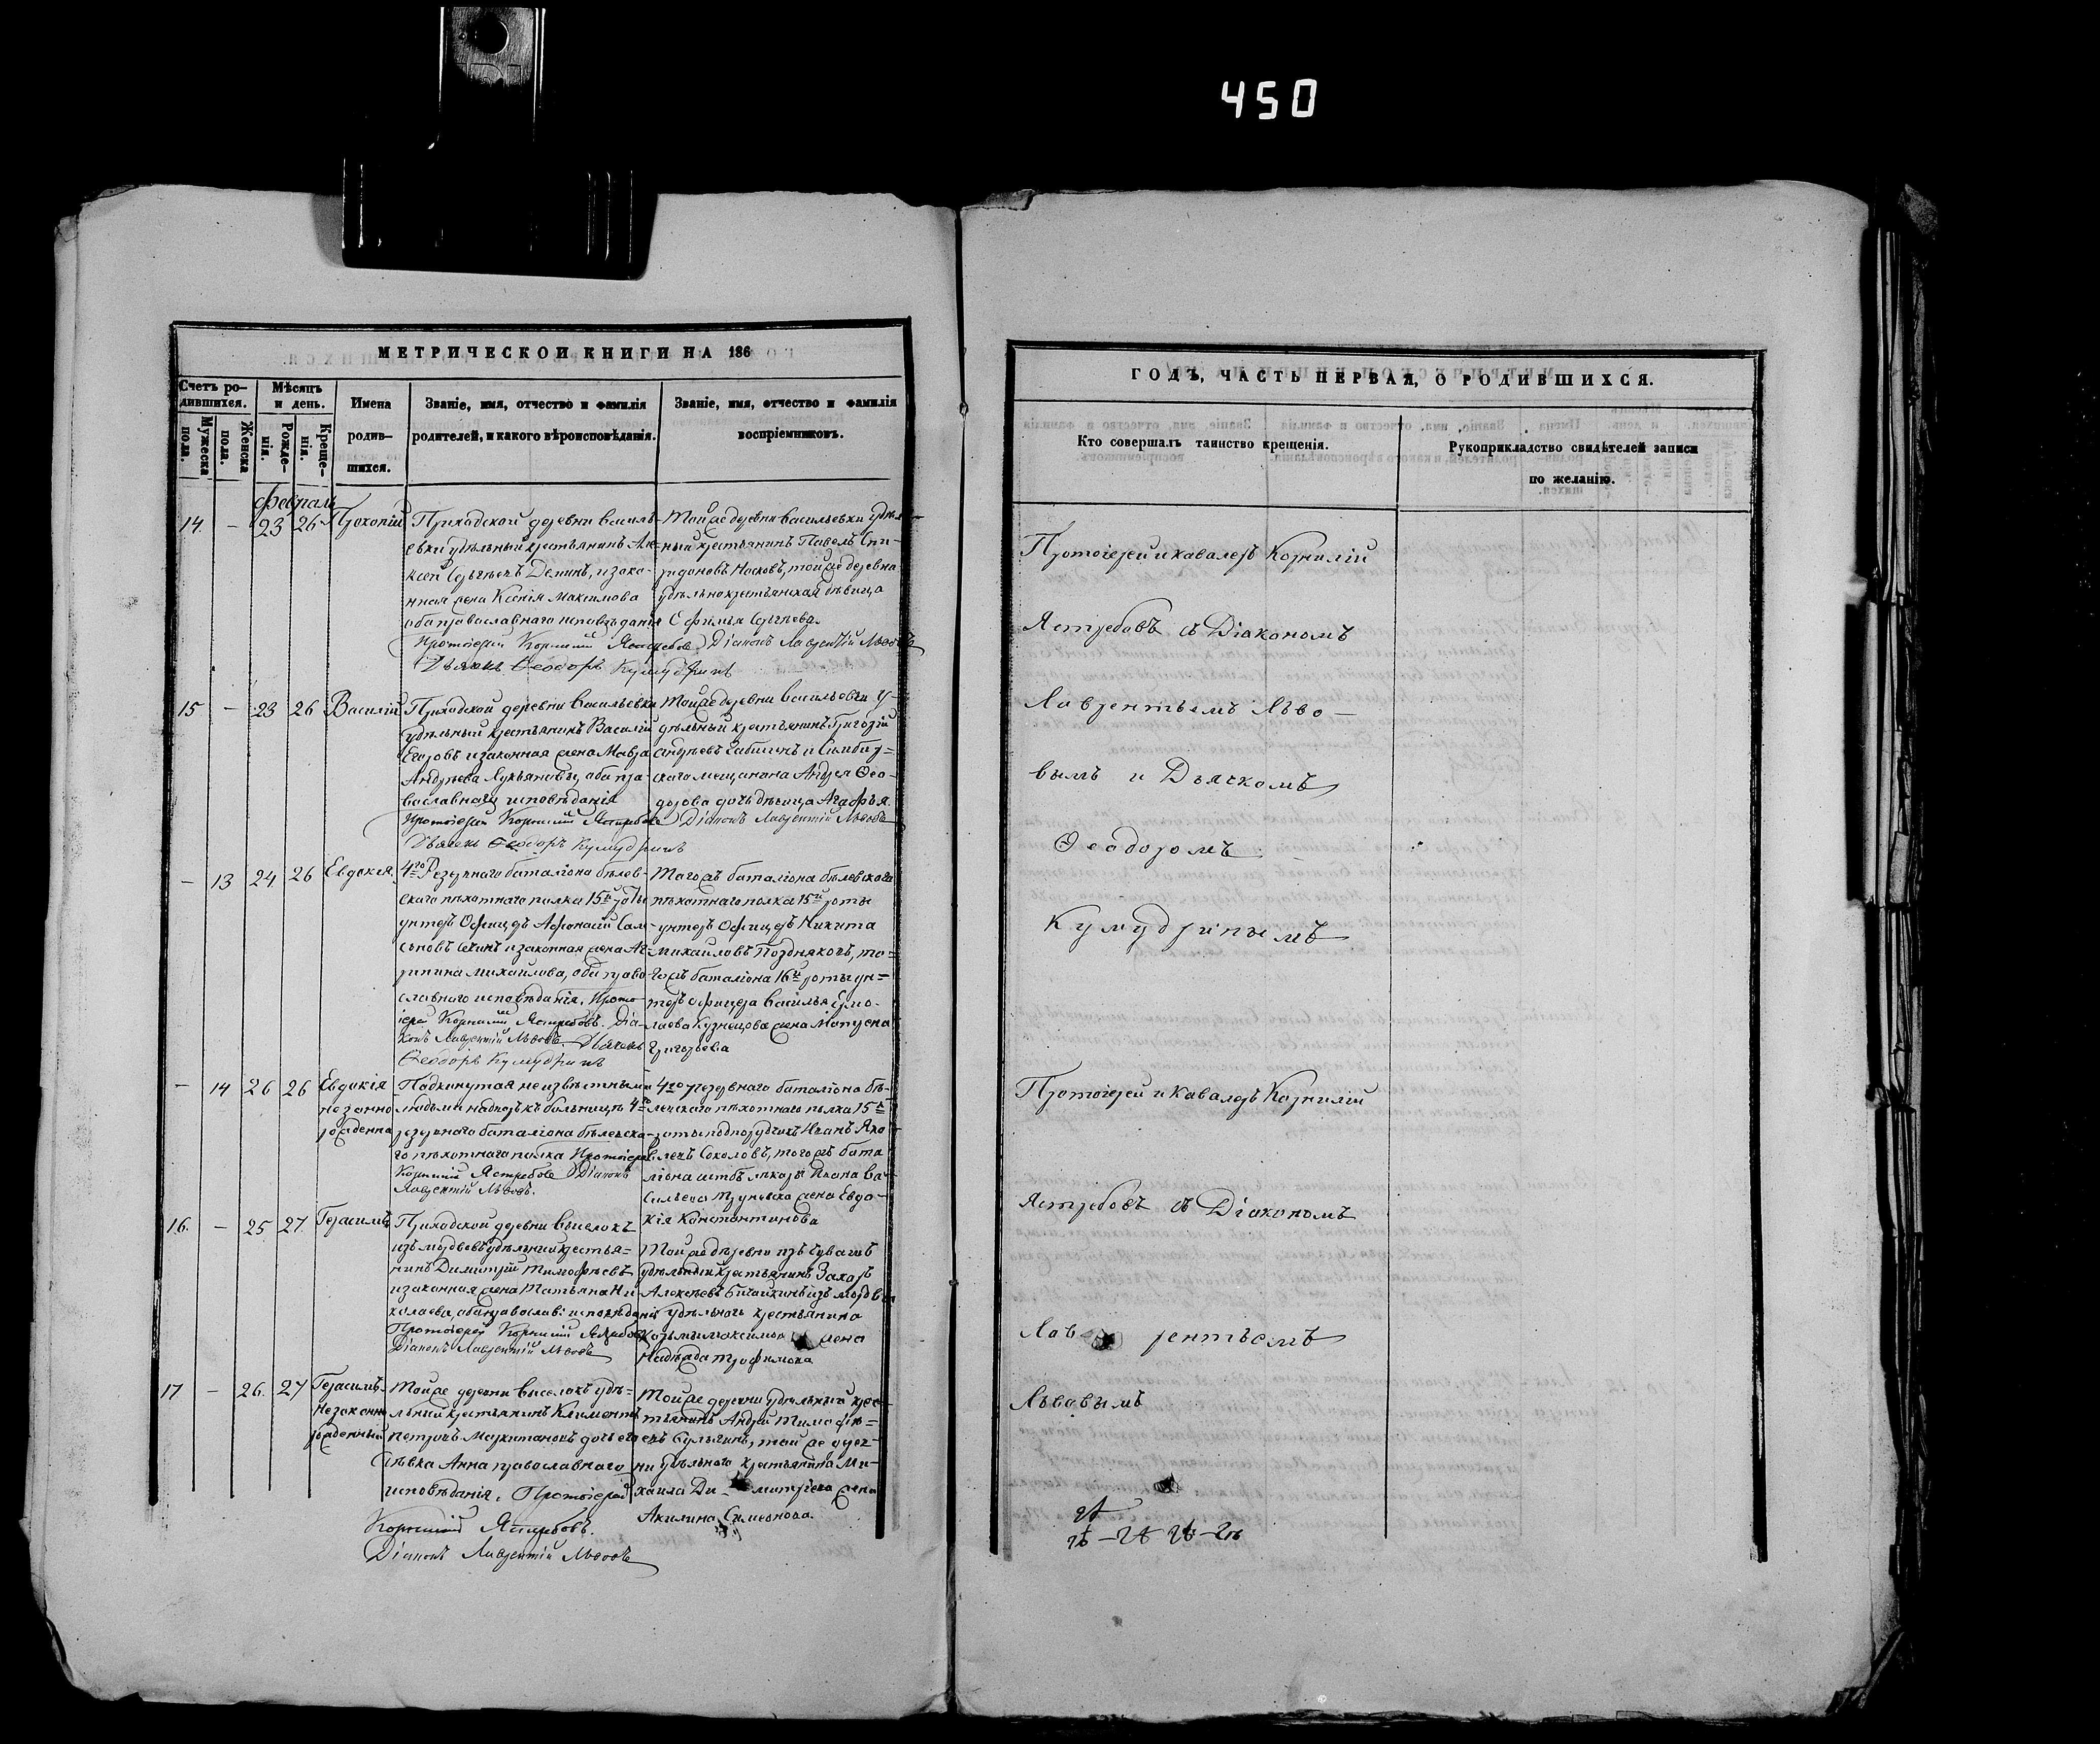 450
МЕТРИЧЕСКОЙ КНИГИ НА 186
Счетъ ро-
дившихся.
Мужеска
пола.
Женска
пола.
Мѣсяцъ
и день.
Рожде-
нія.
Креще-
нія.
Имена
родив-
шихся.
Званіе, имя, отчество и фамилія
родителей, и какого вѣроисповѣданія.
Званіе, имя, отчество и фамилія
воспріемниковъ.
Февраль
14. – 23 26 Прокопій
Приходской деревни Василь-
евки удѣльный крестьянинъ Але-
ксей Сергѣевъ Деминъ, и зако-
нная жена Ксенія Максимова
оба православнаго исповѣданія
Тойже деревни Васильевки удѣль-
ный крестьянинъ Павелъ Спи-
ридоновъ Носковъ, тойже деревни
удѣльнокрестьянская дѣвица
Ефимья Сергѣева.
Протоіерей Корнилій Ястребовъ. Діаконъ Лаврентій Львовъ
Дьячекъ Ѳеодоръ Кумудринъ
15 – 23 26 Василій
Приходской деревни Васильевки
удѣльный крестьянинъ Василій
Егоровъ и законная жена Мавра
Андреева Лукьяновы, оба пра-
вославнаго исповѣданія
Тойже деревни Васильевки у-
дѣльный крестьянинъ Григорій
Андреевъ и Симбир-
скаго мещанина Андрея Ѳео-
дорова дочь дѣвица Агафья.
Протоіерей Корнилій Ястребовъ Діаконъ Лаврентій Львовъ
Дьячекъ Ѳеодоръ Кумудринъ
– 13 24 26 Евдокія.
4го Резервнаго баталіона бѣлев-
скаго пѣхотнаго полка 15й роты
унтеръ Офицеръ Афонасій Сам-
и законная жена Аг-
рипина Михайлова, оба право-
славнаго исповѣданія. Прото-
іерей Корнилій Ястребовъ. Діа-
конъ Лаврентій Львовъ. Дьячекъ
Ѳеодоръ Кумудринъ
Тогожъ баталіона бѣлевскаго
пѣхотнаго полка 15й роты
унтеръ Офицеръ Никита
Михайловъ Поздняковъ, то-
гожъ баталіона 16й роты ун-
теръ офицера Василья Ермо-
лаева Кузнецова жена Матрена
Григорьева
– 14 26 26 Евдокія
незаконно
рожденна
Подкинутая неизвѣстными
людьми на дворъ къ больницѣ 4го
резервнаго баталіона бѣлевска-
го пѣхотнаго полка Протоіерей
Корнилій Ястребовъ Діаконъ
Лаврентій Львовъ.
4го резервнаго баталіона бѣ-
левскаго пѣхотнаго полка 15й
роты подпоручикъ Иванъ Яко-
влевъ Соколовъ, тогожъ бата-
ліона штабъ лекаря Ивана Ва-
сильева жена Евдо-
кія Константинова
16. – 25 27. Герасимъ
Приходской деревни Выселокъ
изъ мордвовъ удѣльный крестья-
нинъ Димитрій Тимофѣевъ
и законная жена Татьяна Ни-
колаева, оба православ: исповѣданія
Протоіерей Корнилій Ястребовъ
Діаконъ Лаврентій Львовъ
Тойже деревни изъ чувашъ
удѣльный крестьянинъ Захаръ
Алексѣевъ изъ мордвы
удѣльнаго крестьянина
Козьмы Максимова жена
Надежда Трофимова
17 – 26. 27 Герасимъ.
Незаконно
рожденный
Тойже деревни Выселокъ удѣ-
льный крестьянинъ Климентъ
Петровъ дочь его
дѣвка Анна православнаго
исповѣданія. Протоіерей
Корнилій Ястребовъ.
Діаконъ Лаврентій Львовъ
Тойже деревни удѣльный крес-
тьянинъ Андрей Тимофѣ-
евъ тойже дерев-
ни удѣльнаго крестьянина Ми-
хаила Димитріева жена
Акилина Симеонова.
ГОДЪ, ЧАСТЬ ПЕРВАЯ, О РОДИВШИХСЯ.
Кто совершалъ таинство крещенія.
Рукоприкладство свидѣтелей записи
по желанію.
Протоіерей и кавалеръ Корнилій
Ястребовъ съ Діакономъ
Лаврентьемъ Льво-
вымъ и Дьячкомъ
Ѳеодоромъ
Кумудринымъ
Протоіерей и Кавалеръ Корнилій
Ястребовъ съ Діакономъ
Лаврентьемъ
Львовымъ